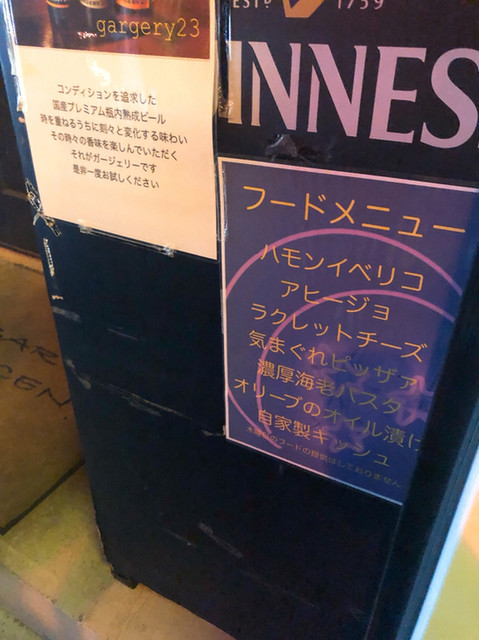 gargery23
コンディションを追求した
国産プレミアム瓶内熟成ビール
時を重ねるうちに刻々と変化する味わい
その時々の香味を楽しんでいただく
それがガージェリーです
是非一度お試しください
1759
INNES
フードメニュー
ハモンイベリコ
アヒージョ
ラクレットチーズ
気まぐれピッザァ
濃厚海老パスタ
オリーブのオイル漬け
自家製キッシュ